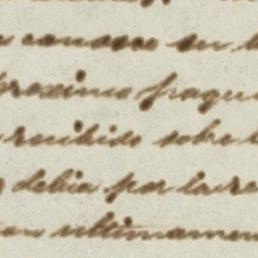 conosco en l
proximo paque
recibido sobre l
debia por la re
ultimamen